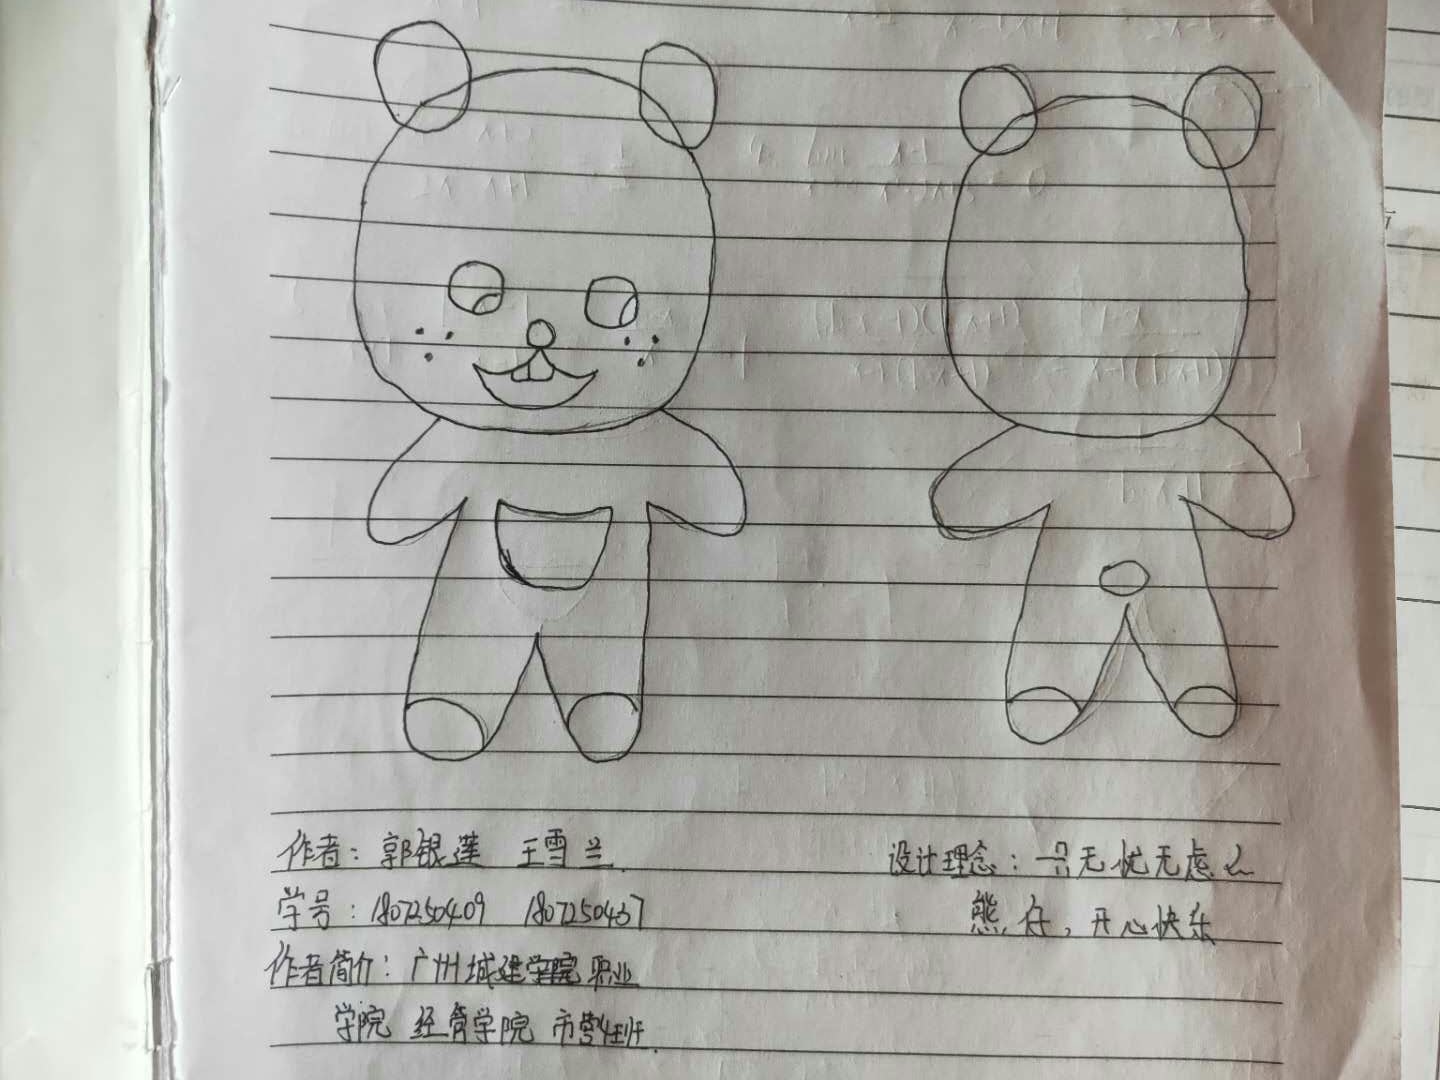 作者：郭银莲 王雪兰
学号：1807250409 1807250437
作者简介：广州城建学院职业
学院 经管学院 市营4班
设计理念：一只无忧无虑心
熊仔，开心快乐